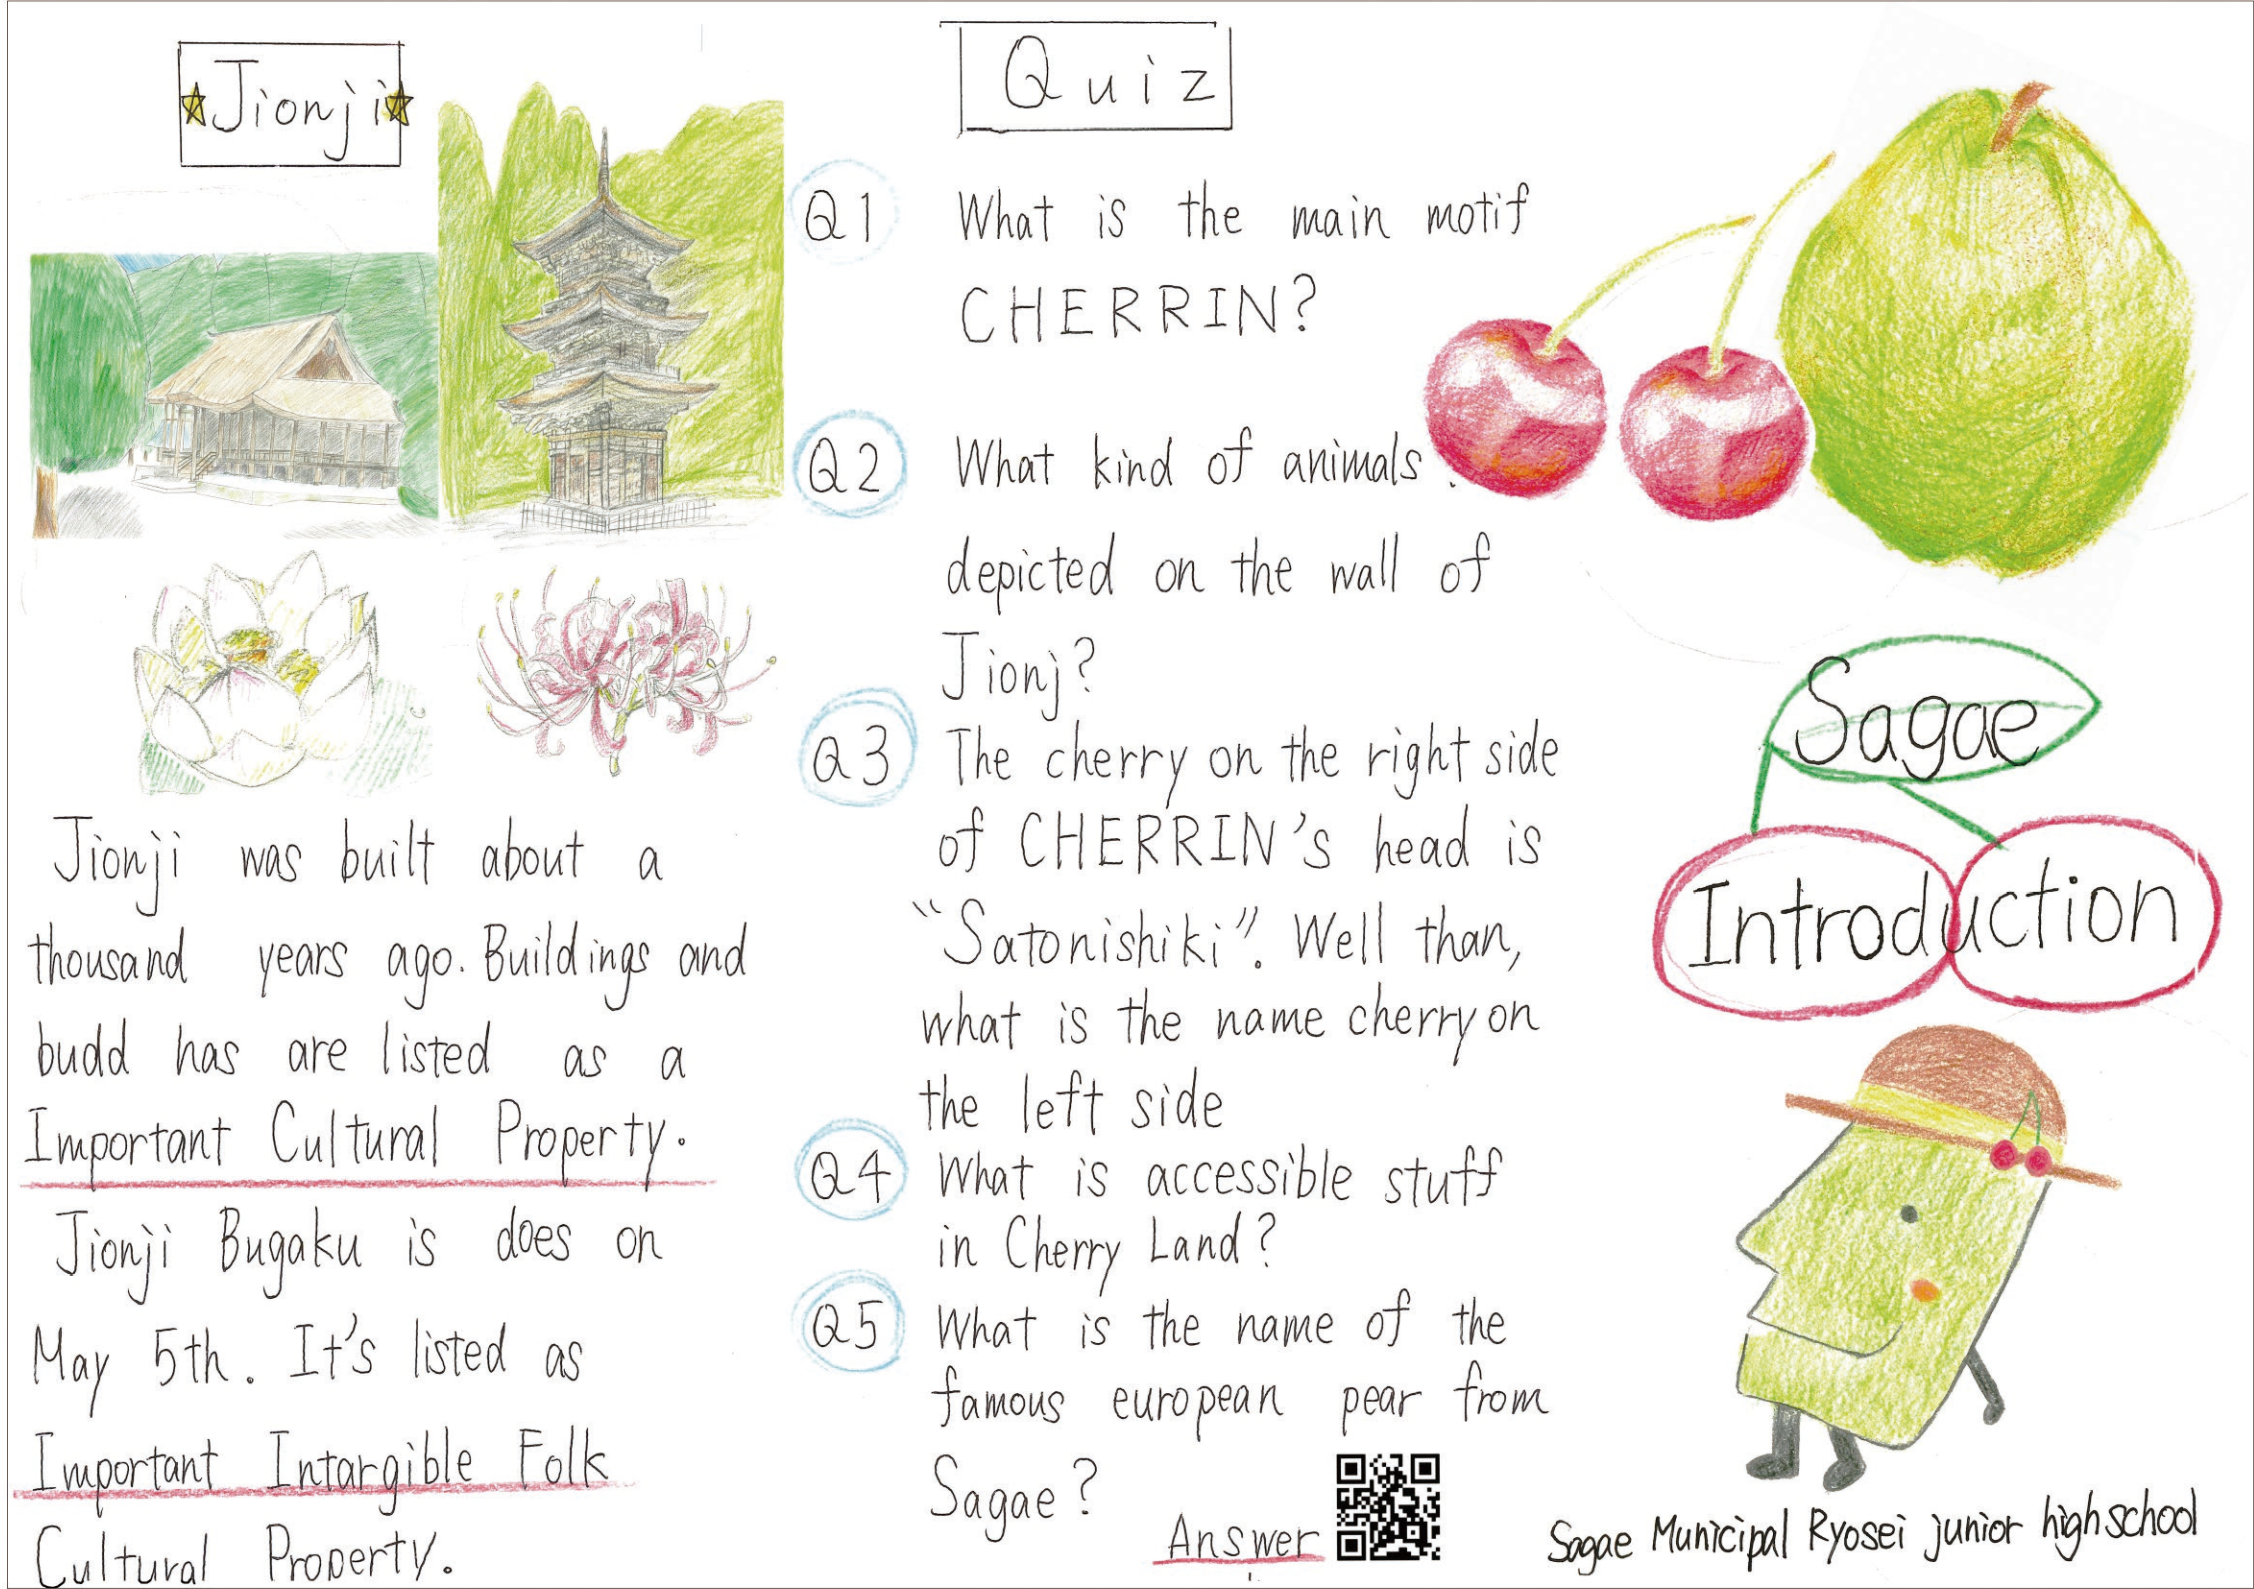 ☆Jionji☆
Jionji was built about a
thousand years ago. Buildings and
budd has are listed as a
Important Cultural Property.
Jionji Bugaku is does on
May 5th. It's listed as
Important Intargible Folk
Cultural Property.
Quiz
Q1 What is the main motif
CHERRIN?
Q2 What kind of animals
depicted on the wall of
Jionj?
Q3 The cherry on the right side
of CHERRIN's head is
"Satonishiki". Well than,
what is the name cherry on
the left side
Q4 What is accessible stuff
in Cherry Land?
Q5 What is the name of the
famous european pear from
Sagae?
Answer
Sagae
Introduction
Sagae Municipal Ryosei junior high school